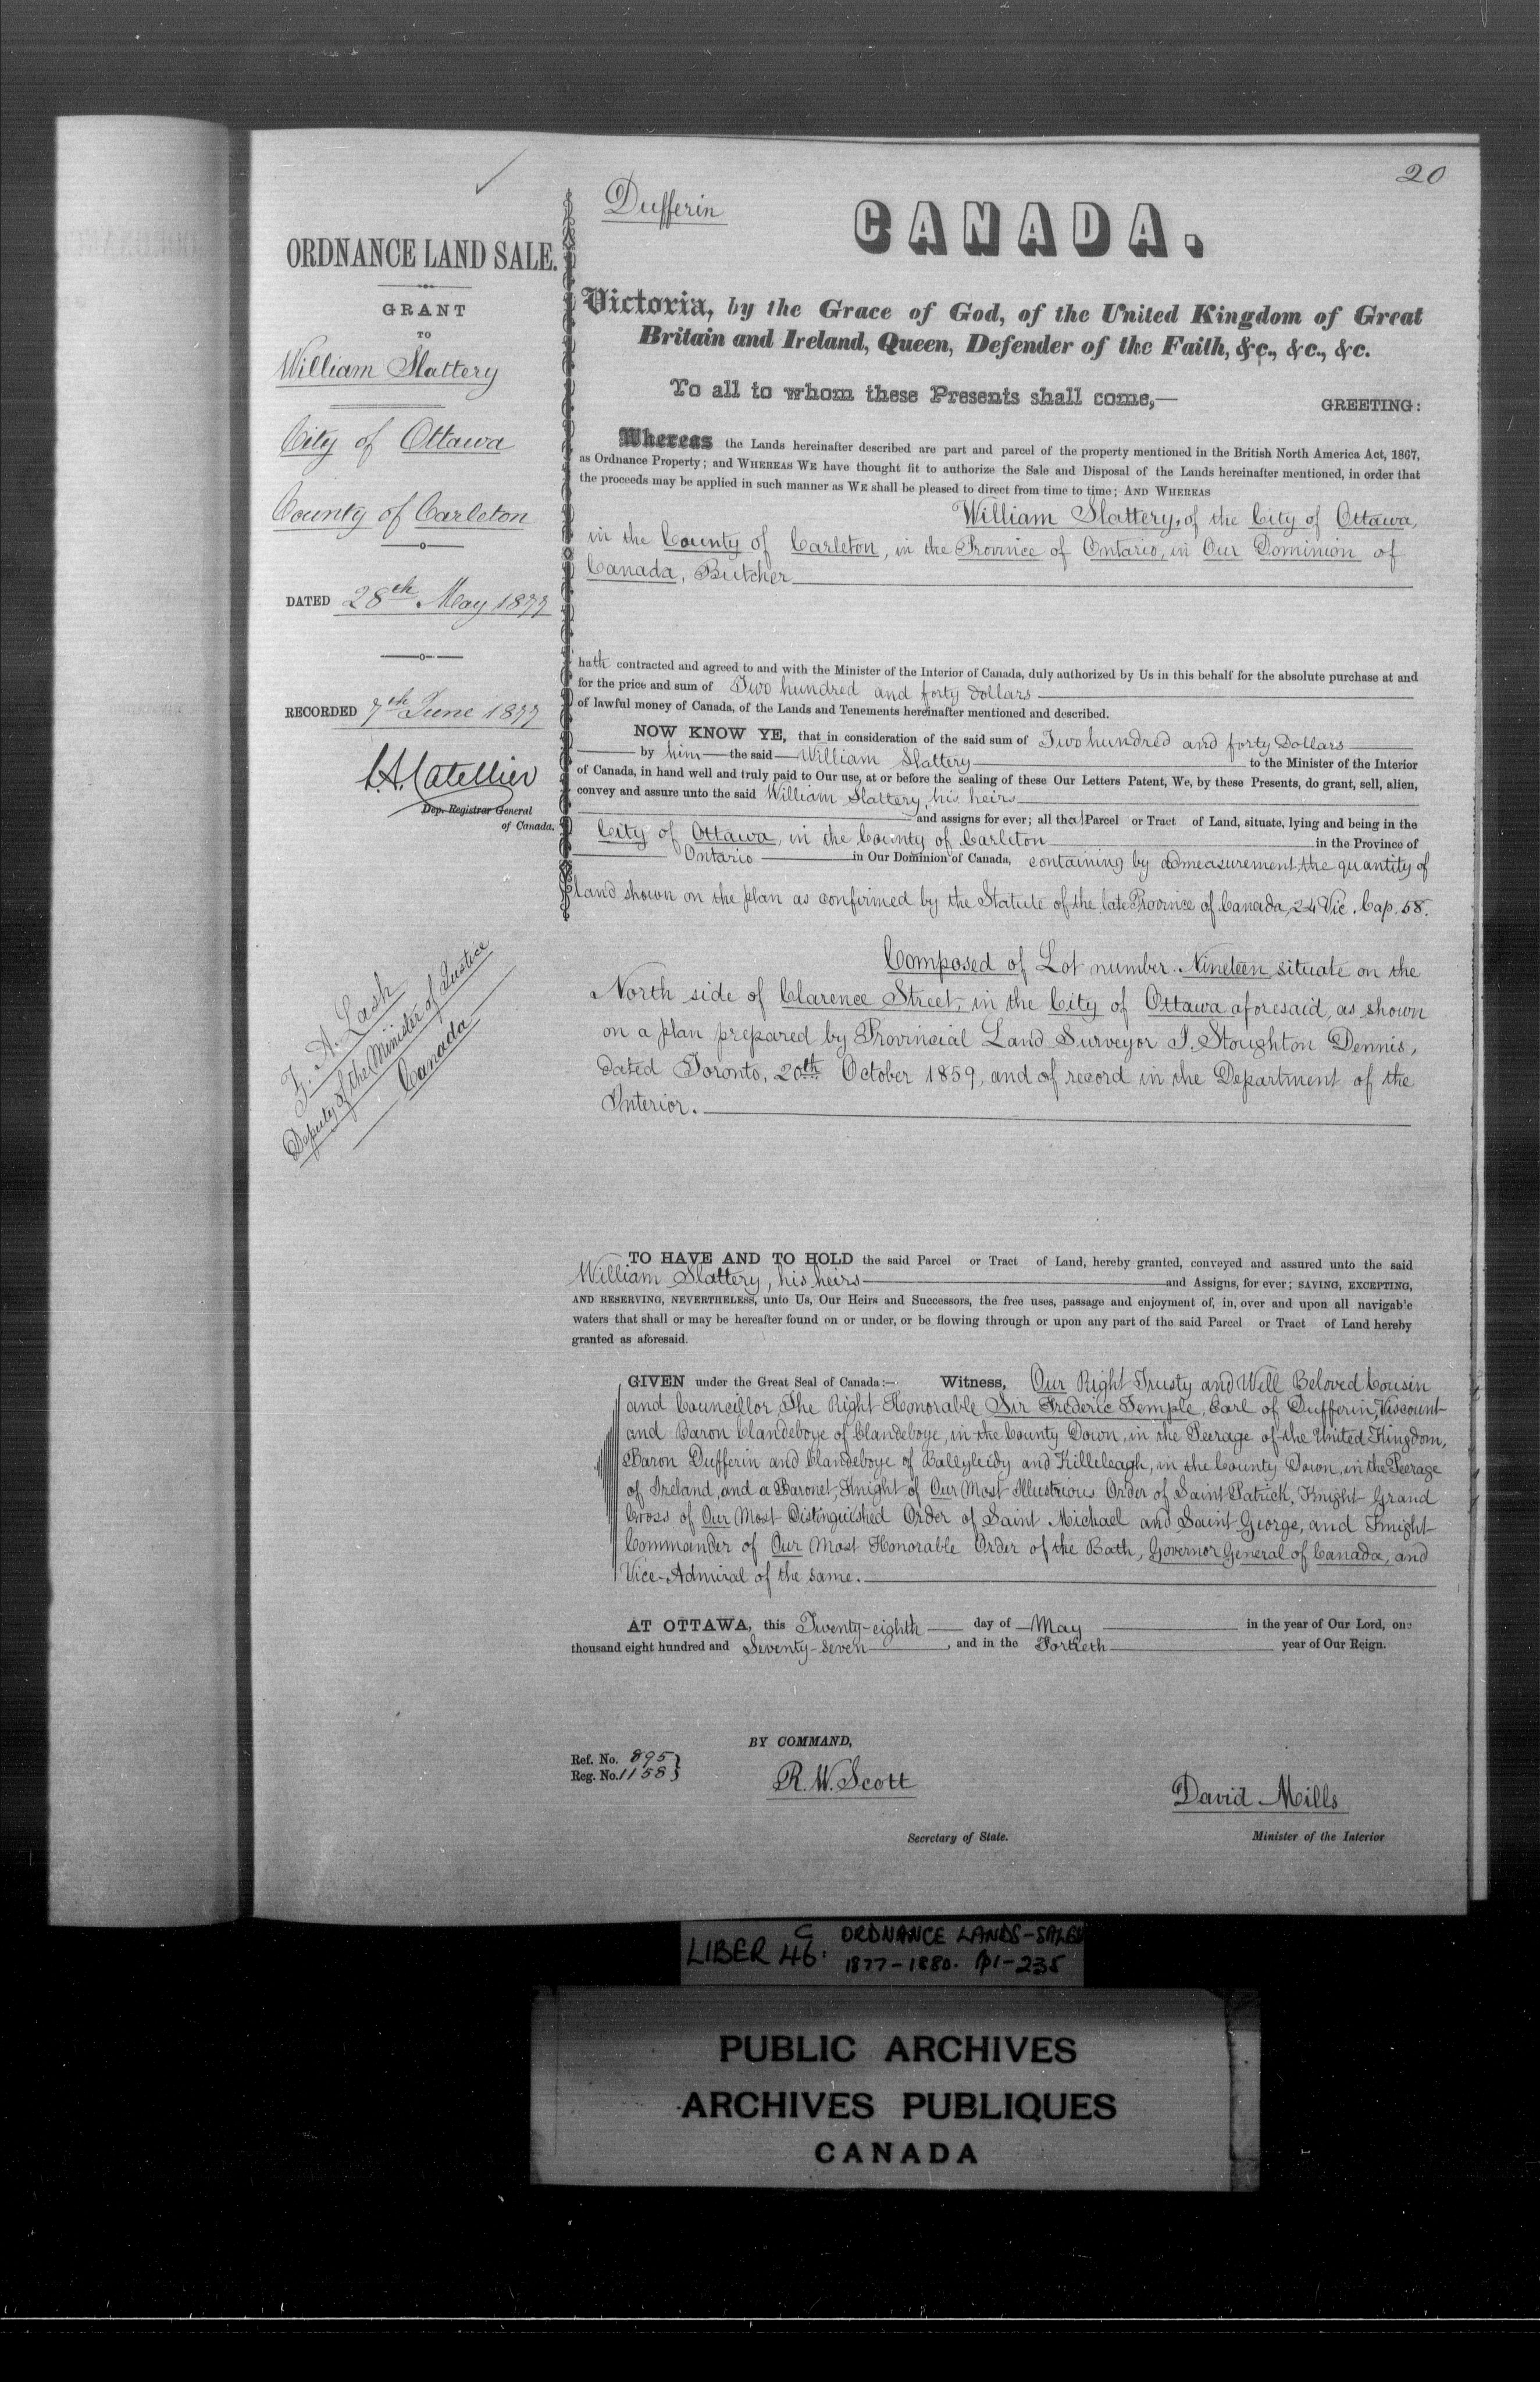 20
Dufferin
CANADA.
ORDNANCE LAND SALE.
GRANT
TO
William Slattery
City of Ottawa
County of Carleton
DATED 28th May 1877
RECORDED 7th June 1877
L.A. Catellier
Dep. Registrar General
of Canada.
Z. A. Lash
Deputy of the Minister of Justice
Canada
Victoria, by the Grace of God, of the United Kingdom of Great
Britain and Ireland, Queen, Defender of the Faith, &c., &c., &c.
To all to whom these Presents shall come,—
GREETING:
Whereas the Lands hereinafter described are part and parcel of the property mentioned in the British North America Act, 1867,
as Ordnance Property; and WHEREAS WE have thought fit to authorize the Sale and Disposal of the Lands hereinafter mentioned, in order that
the proceeds may be applied in such manner as WE shall be pleased to direct from time to time; AND WHEREAS
William Slattery, of the City of Ottawa,
in the County of Carleton, in the Province of Ontario, in Our Dominion of
Canada, Butcher
hath contracted and agreed to and with the Minister of the Interior of Canada, duly authorized by Us in this behalf for the absolute purchase at and
for the price and sum of Two hundred and forty dollars
of lawful money of Canada, of the Lands and Tenements hereinafter mentioned and described.
NOW KNOW YE, that in consideration of the said sum of Two hundred and forty Dollars
by him the said William Slattery to the Minister of the Interior
of Canada, in hand well and truly paid to Our use, at or before the sealing of these Our Letters Patent, We, by these Presents, do grant, sell, alien,
convey and assure unto the said William Slattery, his heirs
and assigns for ever; all that Parcel or Tract of Land, situate, lying and being in the
City of Ottawa, in the County of Carleton in the Province of
Ontario in Our Dominion of Canada, containing by admeasurement the quantity of
land shown on the plan as confirmed by the Statute of the late Province of Canada, 24 Vic. Cap. 58.
Composed of Lot number Nineteen situate on the
North side of Clarence Street, in the City of Ottawa aforesaid, as shown
on a plan prepared by Provincial Land Surveyor J. Stoughton Dennis,
dated Toronto, 20th October 1859, and of record in the Department of the
Interior.
TO HAVE AND TO HOLD the said Parcel or Tract of Land, hereby granted, conveyed and assured unto the said
William Slattery, his heirs and Assigns, for ever; SAVING, EXCEPTING,
AND RESERVING, NEVERTHELESS, unto Us, Our Heirs and Successors, the free uses, passage and enjoyment of, in, over and upon all navigable
waters that shall or may be hereafter found on or under, or be flowing through or upon any part of the said Parcel or Tract of Land hereby
granted as aforesaid.
GIVEN under the Great Seal of Canada:— Witness, Our Right Trusty and Well Beloved Cousin
and Councillor, The Right Honorable Sir Frederic Temple, Earl of Dufferin, Viscount
and Baron Clandeboye of Clandeboye, in the County Down, in the Peerage of the United Kingdom,
Baron Dufferin and Clandeboye of Ballyleidy and Killeleagh, in the County Down, in the Peerage
of Ireland, and a Baronet, Knight of Our Most Illustrious Order of Saint Patrick, Knight Grand
Cross of Our Most Distinguished Order of Saint Michael and Saint George, and Knight
Commander of Our Most Honorable Order of the Bath, Governor General of Canada, and
Vice-Admiral of the same.
AT OTTAWA, this Twenty-eighth day of May in the year of Our Lord, one
thousand eight hundred and Seventy-seven, and in the Fortieth year of Our Reign.
BY COMMAND,
Ref. No. 895
Reg. No. 1158
R. W. Scott
Secretary of State.
David Mills
Minister of the Interior
LIBER 46. C ORDNANCE LANDS-SALES
1877-1880. p1-235
PUBLIC ARCHIVES
ARCHIVES PUBLIQUES
CANADA